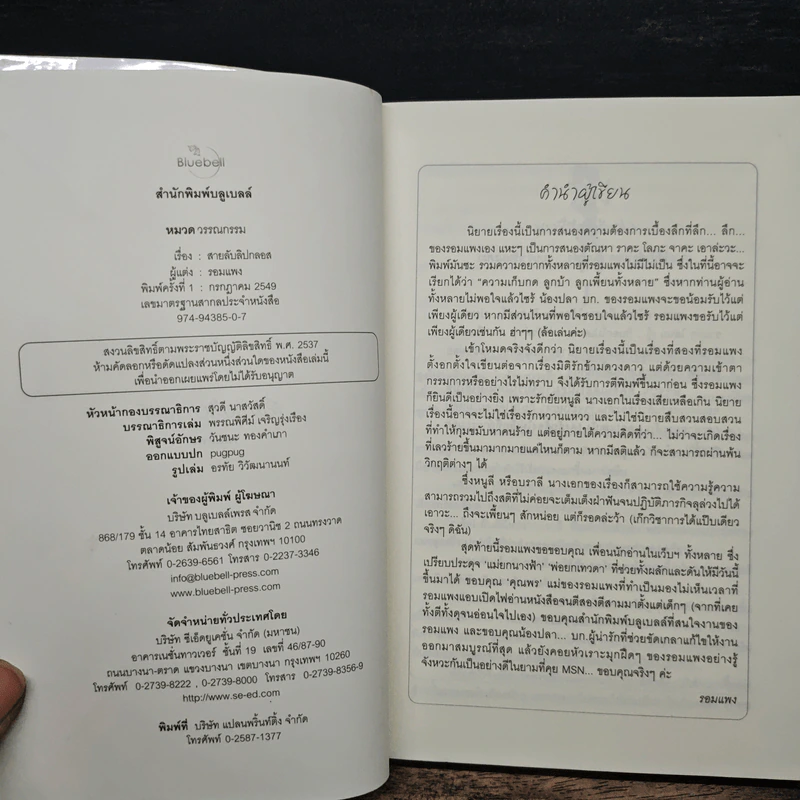 Bluebell
สำนักพิมพ์บลูเบลล์
หมวด วรรณกรรม
เรื่อง : สายลับลิปกลอส
ผู้แต่ง : รอมแพง
พิมพ์ครั้งที่ 1 : กรกฎาคม 2549
เลขมาตรฐานสากลประจำหนังสือ
974-94385-0-7
สงวนลิขสิทธิ์ตามพระราชบัญญัติลิขสิทธิ์ พ.ศ. 2537
ห้ามคัดลอกหรือดัดแปลงส่วนหนึ่งส่วนใดของหนังสือเล่มนี้
เพื่อนำออกเผยแพร่โดยไม่ได้รับอนุญาต
หัวหน้ากองบรรณาธิการ สุวดี นาสวัสดิ์
บรรณาธิการเล่ม พรรณพิศีม์ เจริญรุ่งเรือง
พิสูจน์อักษร วันชนะ ทองคำเภา
ออกแบบปก pugpug
รูปเล่ม อรทัย วิวัฒนานนท์
เจ้าของผู้พิมพ์ ผู้โฆษณา
บริษัท บลูเบลล์เพรส จำกัด
868/179 ชั้น 14 อาคารไทยสาธิต ซอยวานิช 2 ถนนทรงวาด
ตลาดน้อย สัมพันธวงศ์ กรุงเทพฯ 10100
โทรศัพท์ 0-2639-6561 โทรสาร 0-2237-3346
info@bluebell-press.com
www.bluebell-press.com
จัดจำหน่ายทั่วประเทศโดย
บริษัท ซีเอ็ดยูเคชั่น จำกัด (มหาชน)
อาคารเนชั่นทาวเวอร์ ชั้นที่ 19 เลขที่ 46/87-90
ถนนบางนา-ตราด แขวงบางนา เขตบางนา กรุงเทพฯ 10260
โทรศัพท์ 0-2739-8222 , 0-2739-8000 โทรสาร 0-2739-8356-9
http://www.se-ed.com
พิมพ์ที่ บริษัท แปลนพริ้นท์ติ้ง จำกัด
โทรศัพท์ 0-2587-1377
คำนำผู้เขียน
นิยายเรื่องนี้เป็นการสนองความต้องการเบื้องลึกที่ลึก... ลึก...
ของรอมแพงเอง แหะๆ เป็นการสนองตัณหา ราคะ โลภะ จาคะ เอาล่ะวะ...
พิมพ์มันซะ รวมความอยากทั้งหลายที่รอมแพงไม่มีไม่เป็น ซึ่งในที่นี้อาจจะ
เรียกได้ว่า “ความเก็บกด ลูกบ้า ลูกเพี้ยนทั้งหลาย” ซึ่งหากท่านผู้อ่าน
ทั้งหลายไม่พอใจแล้วไซร้ น้องปลา บก. ของรอมแพงจะขอน้อมรับไว้แต่
เพียงผู้เดียว หากมีส่วนไหนที่พอใจชอบใจแล้วไซร้ รอมแพงขอรับไว้แต่
เพียงผู้เดียวเช่นกัน ฮ่าๆๆ (ล้อเล่นค่ะ)
เข้าโหมดจริงจังดีกว่า นิยายเรื่องนี้เป็นเรื่องที่สองที่รอมแพง
ตั้งอกตั้งใจเขียนต่อจากเรื่องมิติรักข้ามดวงดาว แต่ด้วยความเข้าตา
กรรมการหรืออย่างไรไม่ทราบ จึงได้รับการตีพิมพ์ขึ้นมาก่อน ซึ่งรอมแพง
ก็ยินดีเป็นอย่างยิ่ง เพราะรักยัยหนูลี นางเอกในเรื่องเสียเหลือเกิน นิยาย
เรื่องนี้อาจจะไม่ใช่เรื่องรักหวานแหวว และไม่ใช่นิยายสืบสวนสอบสวน
ที่ทำให้กุมขมับหาคนร้าย แต่อยู่ภายใต้ความคิดที่ว่า... ไม่ว่าจะเกิดเรื่อง
ที่เลวร้ายขึ้นมามากมายแค่ไหนก็ตาม หากมีสติแล้ว ก็จะสามารถผ่านพ้น
วิกฤติต่างๆ ได้
ซึ่งหนูลี หรือบราลี นางเอกของเรื่องก็สามารถใช้ความรู้ความ
สามารถรวมไปถึงสติที่ไม่ค่อยจะเต็มเต็งฝ่าฟันจนปฏิบัติภารกิจลุล่วงไปได้
เอาวะ... ถึงจะเพี้ยนๆ สักหน่อย แต่ก็รอดล่ะว้า (เก๊กวิชาการได้แป๊บเดียว
จริงๆ ดิฉัน)
สุดท้ายนี้รอมแพงขอขอบคุณ เพื่อนนักอ่านในเว็บฯ ทั้งหลาย ซึ่ง
เปรียบประดุจ ‘แม่ยกนางฟ้า’ ‘พ่อยกเทวดา’ ที่ช่วยทั้งผลักและดันให้มีวันนี้
ขึ้นมาได้ ขอบคุณ ‘คุณพร’ แม่ของรอมแพงที่ทำเป็นมองไม่เห็นเวลาที่
รอมแพงแอบเปิดไฟอ่านหนังสือจนตีสองตีสามมาตั้งแต่เด็กๆ (จากที่เคย
ทั้งตีทั้งดุจนอ่อนใจไปเอง) ขอบคุณสำนักพิมพ์บลูเบลล์ที่สนใจงานของ
รอมแพง และขอบคุณน้องปลา... บก.ผู้น่ารักที่ช่วยขัดเกลาแก้ไขให้งาน
ออกมาสมบูรณ์ที่สุด แล้วยังคอยหัวเราะมุกฝืดๆ ของรอมแพงอย่างรู้
จังหวะกันเป็นอย่างดีในยามที่คุย MSN... ขอบคุณจริงๆ ค่ะ
รอมแพง